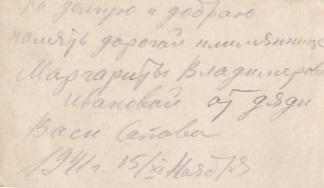 На долгую и добрую
память дорогой племяннице
Маргариты Владимеров
Ивановой от дяди
Васи
1941 г. 15/XI Ноября